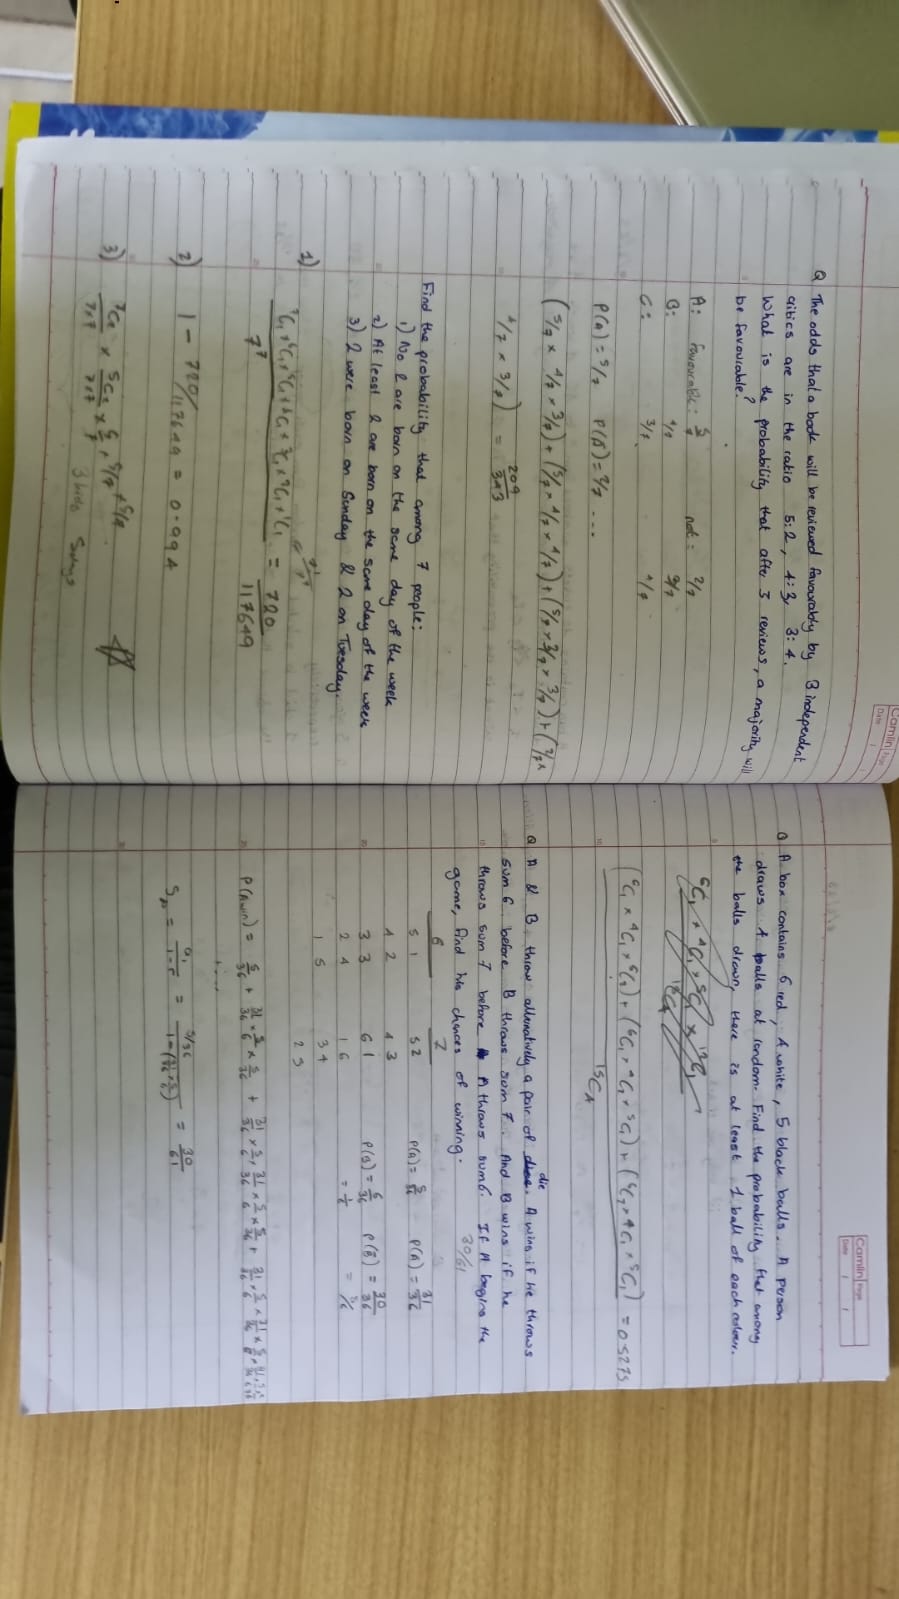 Camlin Page
Date / /
Q The odds that a book will be reviewed favourably by 3 independent
critics are in the ratio 5:2, 4:3, 3:4.
What is the probability that after 3 reviews, a majority will
be favourable?
A: favourable: 5/7 not: 2/7
B: 4/7 3/7
C: 3/7 4/7
P(A) = 5/7 P(Ā) = 2/7 ...
(5/7 × 4/7 × 3/7) + (5/7 × 4/7 × 4/7) + (5/7 × 3/7 × 3/7) + (2/7 ×
4/7 × 3/7) = 209/343
Find the probability that among 7 people:
1) No 2 are born on the same day of the week
2) At least 2 are born on the same day of the week
3) 2 were born on Sunday & 2 on Tuesday.
1) ⁷C₁ × ⁶C₁ × ⁵C₁ × ⁴C₁ × ³C₁ × ²C₁ × ¹C₁ / 7⁷ = 720/117649
2) 1 - 720/117649 = 0.994
3) ⁷C₂/7×7 × ⁵C₂/7×7 × 5/7 × 5/7 × 5/7.
Camlin Page
Date / /
Q A box contains 6 red, 4 white, 5 black balls. A person
draws 4 balls at random. Find the probability that among
the balls drawn, there is at least 1 ball of each colour.
(⁶C₁ × ⁴C₁ × ⁵C₂) + (⁶C₁ × ⁴C₂ × ⁵C₁) + (⁶C₂ × ⁴C₁ × ⁵C₁) / ¹⁵C₄ = 0.5275
Q A & B throw alternatively a pair of die. A wins if he throws
sum 6 before B throws sum 7. And B wins if he
throws sum 7 before A throws sum 6. If A begins the
game, find his chances of winning. 30/61
6 7
5 1 5 2 P(A) = 5/36 P(Ā) = 31/36
4 2 4 3
3 3 6 1 P(B) = 6/36 P(B̄) = 30/36
2 4 1 6 = 1/6 = 5/6
1 5 3 4
2 5
P(A win) = 5/36 + 31/36 × 5/6 × 5/36 + 31/36 × 5/6 × 31/36 × 5/6 × 5/36 +
+ ....
S∞ = a₁/1-r = 5/36 / 1-(31/36 × 5/6) = 30/61